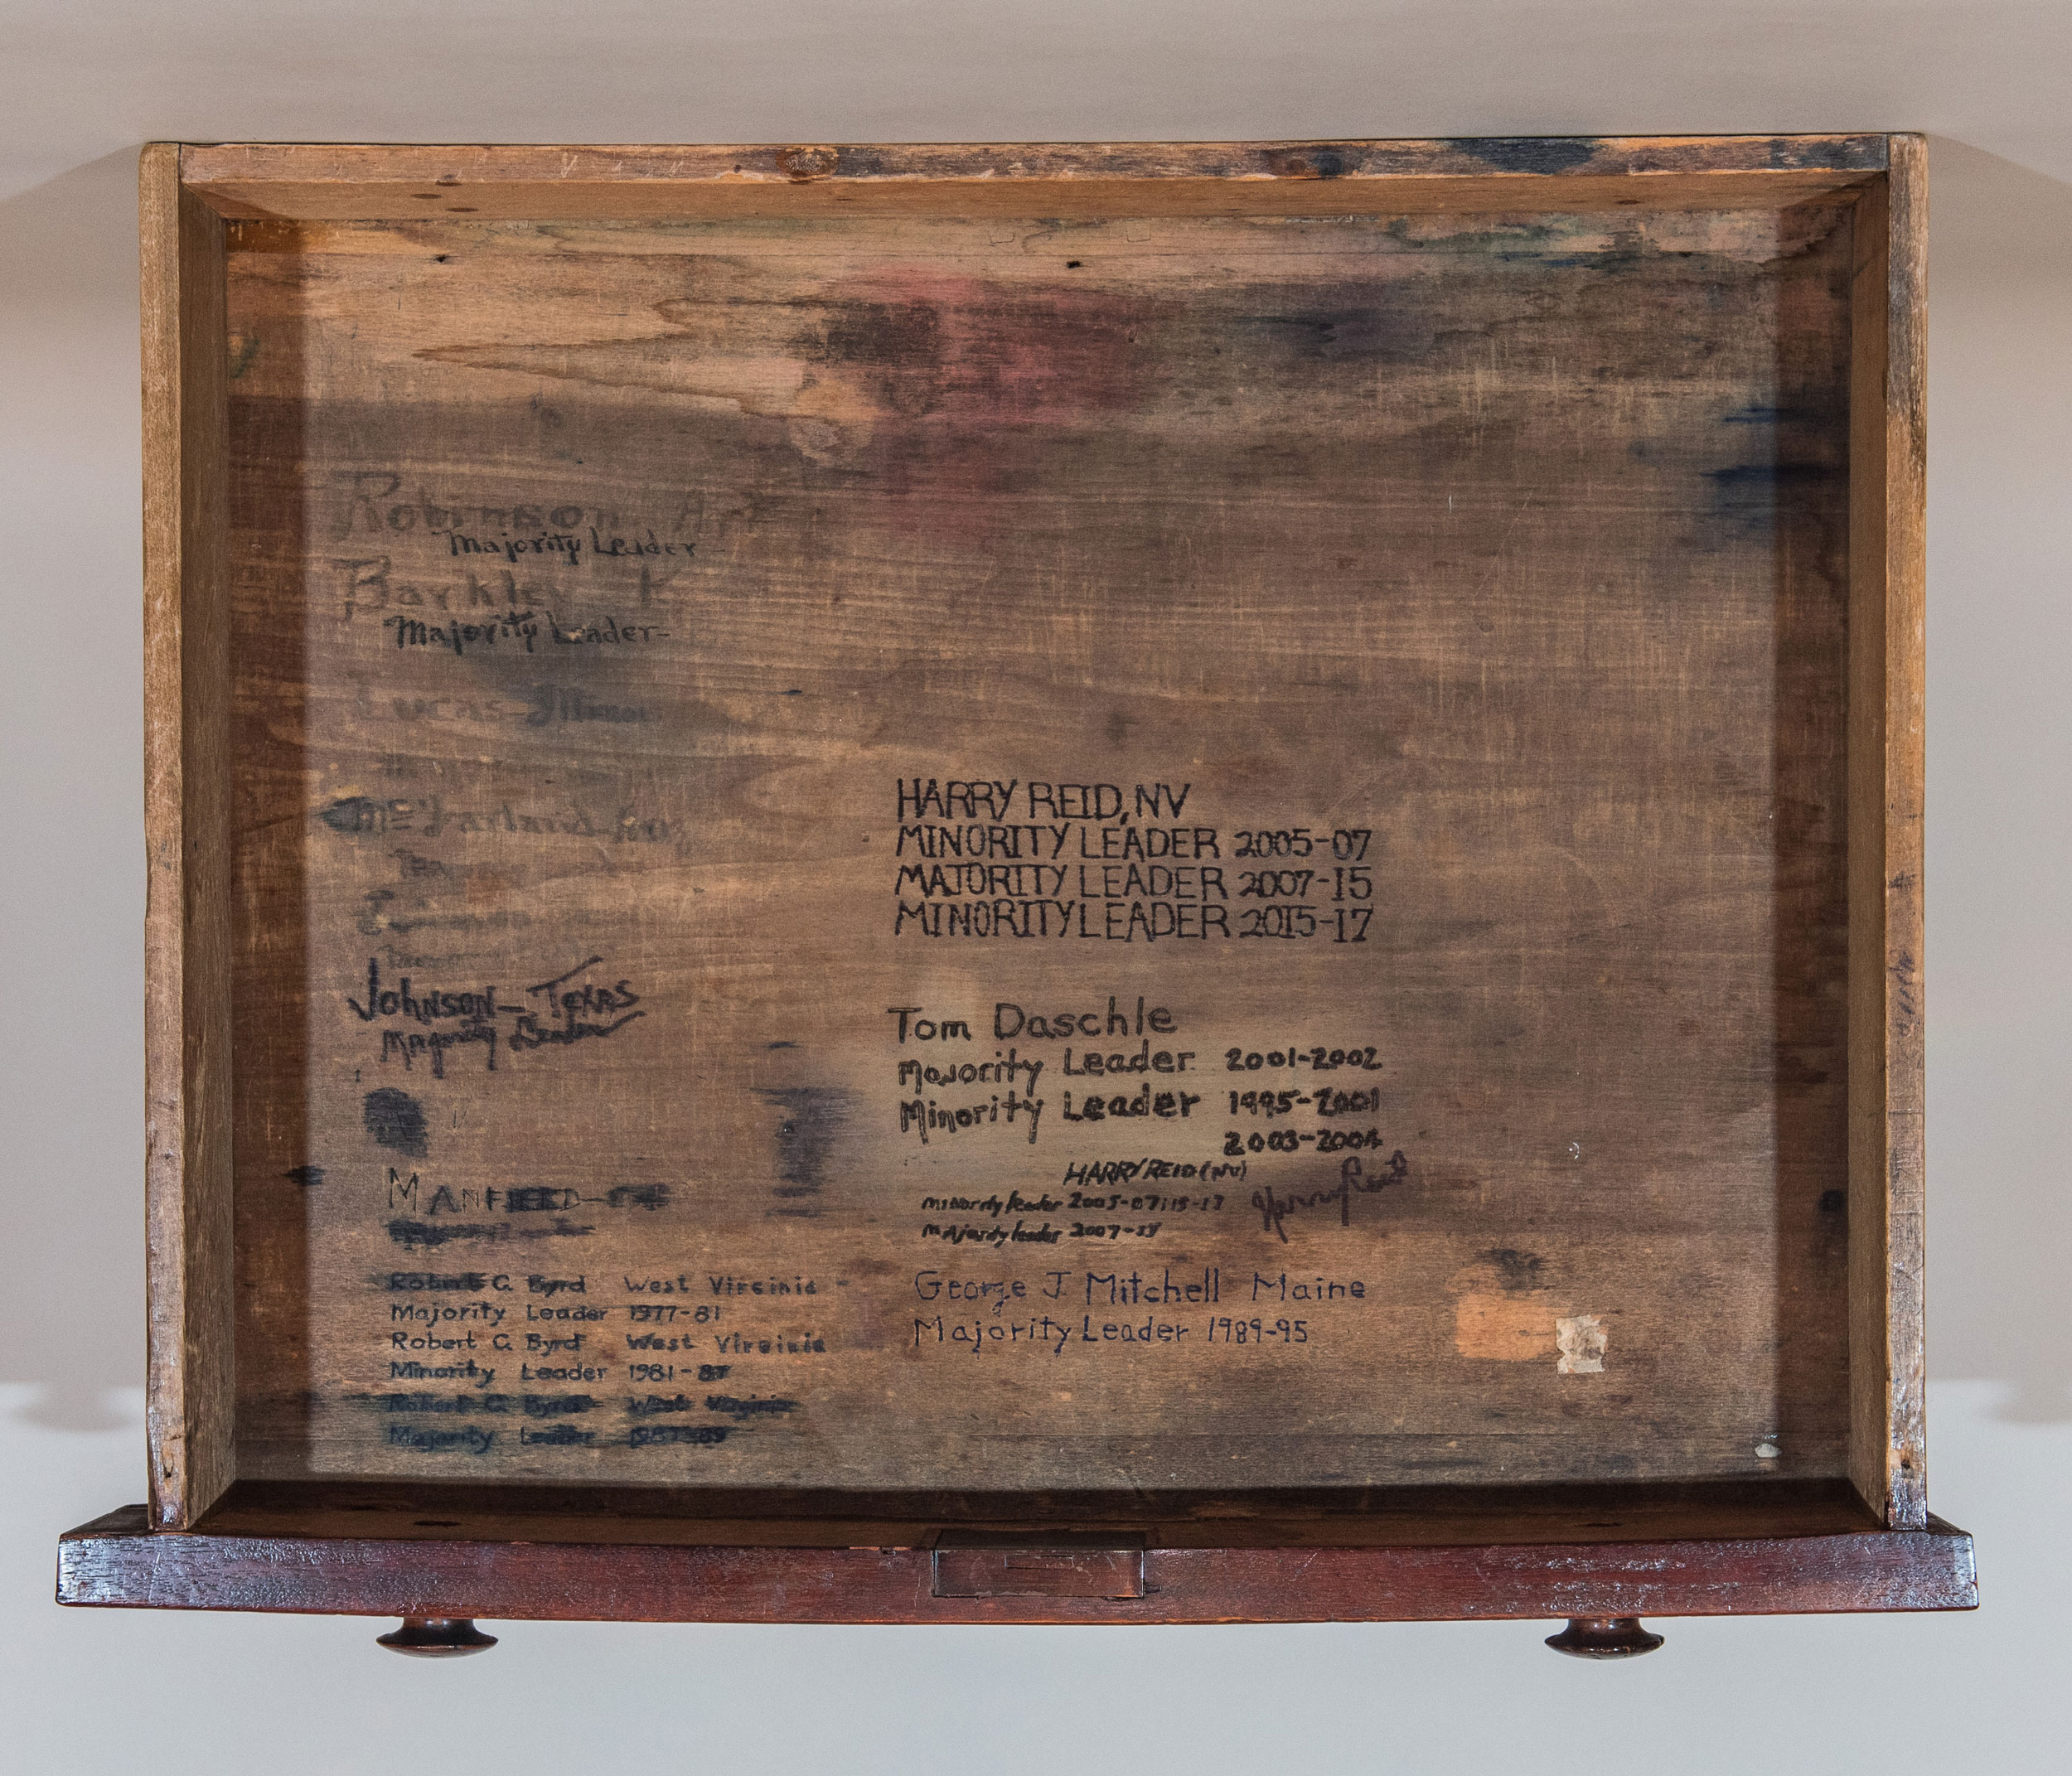 Robinson Ark
Majority Leader
Barkley K
Majority Leader-
Lucas-Illinois
McFarland-Ariz
Johnson-Texas
Majority Leader
MANFIEED-
Robert C. Byrd West Virginia
Majority Leader 1977-81
Robert C. Byrd West Virginia
Minority Leader 1981-87
Robert C. Byrd West Virginia
Majority Leader 1987-89
HARRY REID, NV
MINORITY LEADER 2005-07
MAJORITY LEADER 2007-15
MINORITY LEADER 2015-17
Tom Daschle
Majority Leader 2001-2002
Minority Leader 1995-2001
2003-2004
HARRY REID (NV)
minority leader 2005-07; 15-17
Harry Reid
majority leader 2007-15
George J. Mitchell Maine
Majority Leader 1989-95